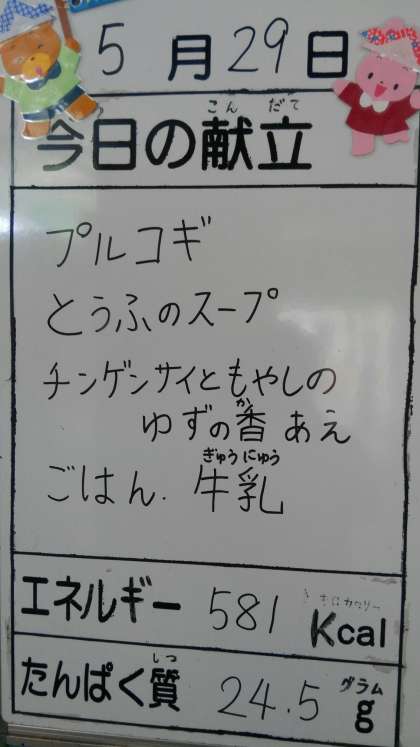 5月29日
こんだて
今日の献立
プルコギ
とうふのスープ
チンゲンサイともやしの
か
ゆずの香あえ
ぎゅうにゅう
ごはん. 牛乳
エネルギー 581 Kcal
しつ
たんぱく質 24.5 g
グラム